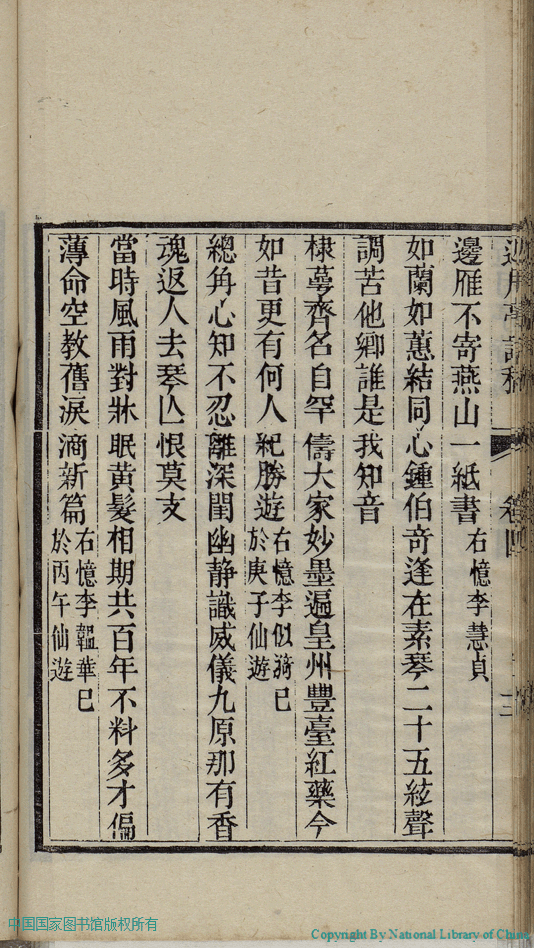 卷四
邊雁不寄燕山一紙書
右憶李慧貞
如蘭如蕙結同心鍾伯奇逢在素琴二十五絃聲
調苦他鄉誰是我知音
棣萼齊名自罕儔大家妙墨遍皇州豐臺紅藥今
如昔更有何人紀勝遊
右憶李似漪已
於庚子仙遊
總角心知不忍離深閨幽静識威儀九原那有香
魂返人去琴亾恨莫支
當時風雨對牀眠黃髮相期共百年不料多才偏
薄命空教舊淚滴新篇
右憶李韞華已
於丙午仙遊
中国国家图书馆版权所有
Copyright By National Library of China